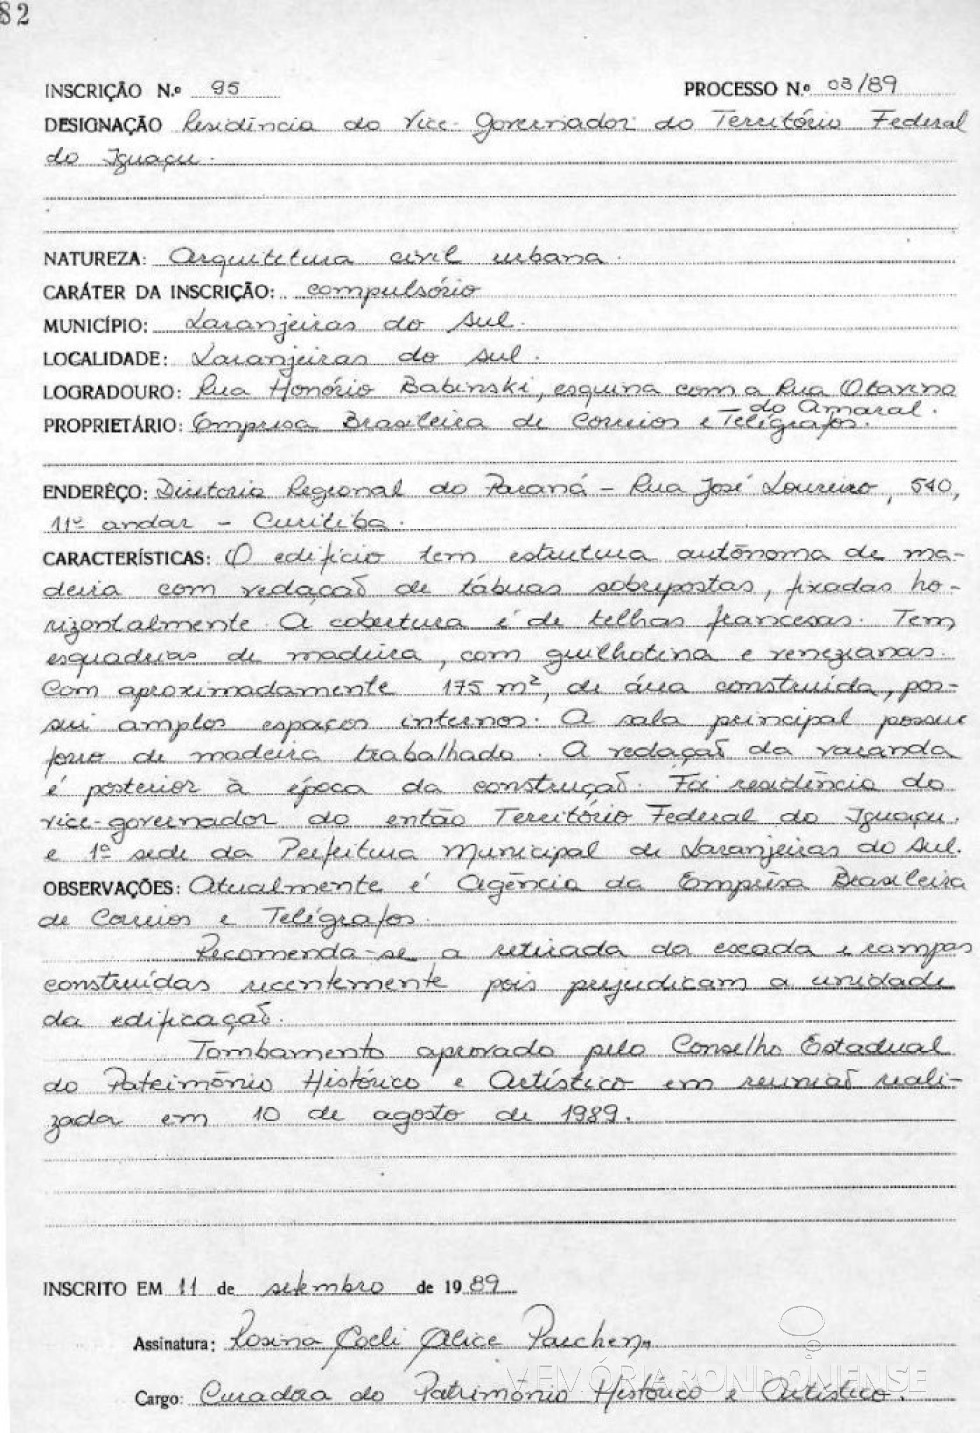 82
INSCRIÇÃO N.º 95 PROCESSO N.º 03/89
DESIGNAÇÃO Residência do Vice-Governador do Território Federal
do Iguaçu.
NATUREZA: Arquitetura civil urbana.
CARÁTER DA INSCRIÇÃO: compulsório
MUNICÍPIO: Laranjeiras do Sul.
LOCALIDADE: Laranjeiras do Sul.
LOGRADOURO: Rua Honório Babinski, esquina com a Rua Otavino
do Amaral.
PROPRIETÁRIO: Empresa Brasileira de Correios e Telégrafos.
ENDERÊÇO: Diretoria Regional do Paraná – Rua José Loureiro, 540,
11º andar – Curitiba.
CARACTERÍSTICAS: O edifício tem estrutura autônoma de ma-
deira com vedação de tábuas sobrepostas, fixadas ho-
rizontalmente. A cobertura é de telhas francesas. Tem
esquadrias de madeira, com guilhotina e venezianas.
Com aproximadamente 175 m², de área construída, pos-
sui amplos espaços internos. A sala principal possui
forro de madeira trabalhado. A vedação da varanda
é posterior à época da construção. Foi residência do
vice-governador do então Território Federal do Iguaçu.
e 1ª sede da Prefeitura Municipal de Laranjeiras do Sul.
OBSERVAÇÕES: Atualmente é Agência da Emprêsa Brasileira
de Correios e Telégrafos.
Recomenda-se a retirada da escada e rampas
construídas recentemente pois prejudicam a unidade
da edificação.
Tombamento aprovado pelo Conselho Estadual
do Patrimônio Histórico e Artístico em reunião reali-
zada em 10 de agosto de 1989.
INSCRITO EM 11 de setembro de 1989
Assinatura: Rosina Coeli Alice Parchen
MEMÓRIA RONDONENSE
Cargo: Curadora do Patrimônio Histórico e Artístico.